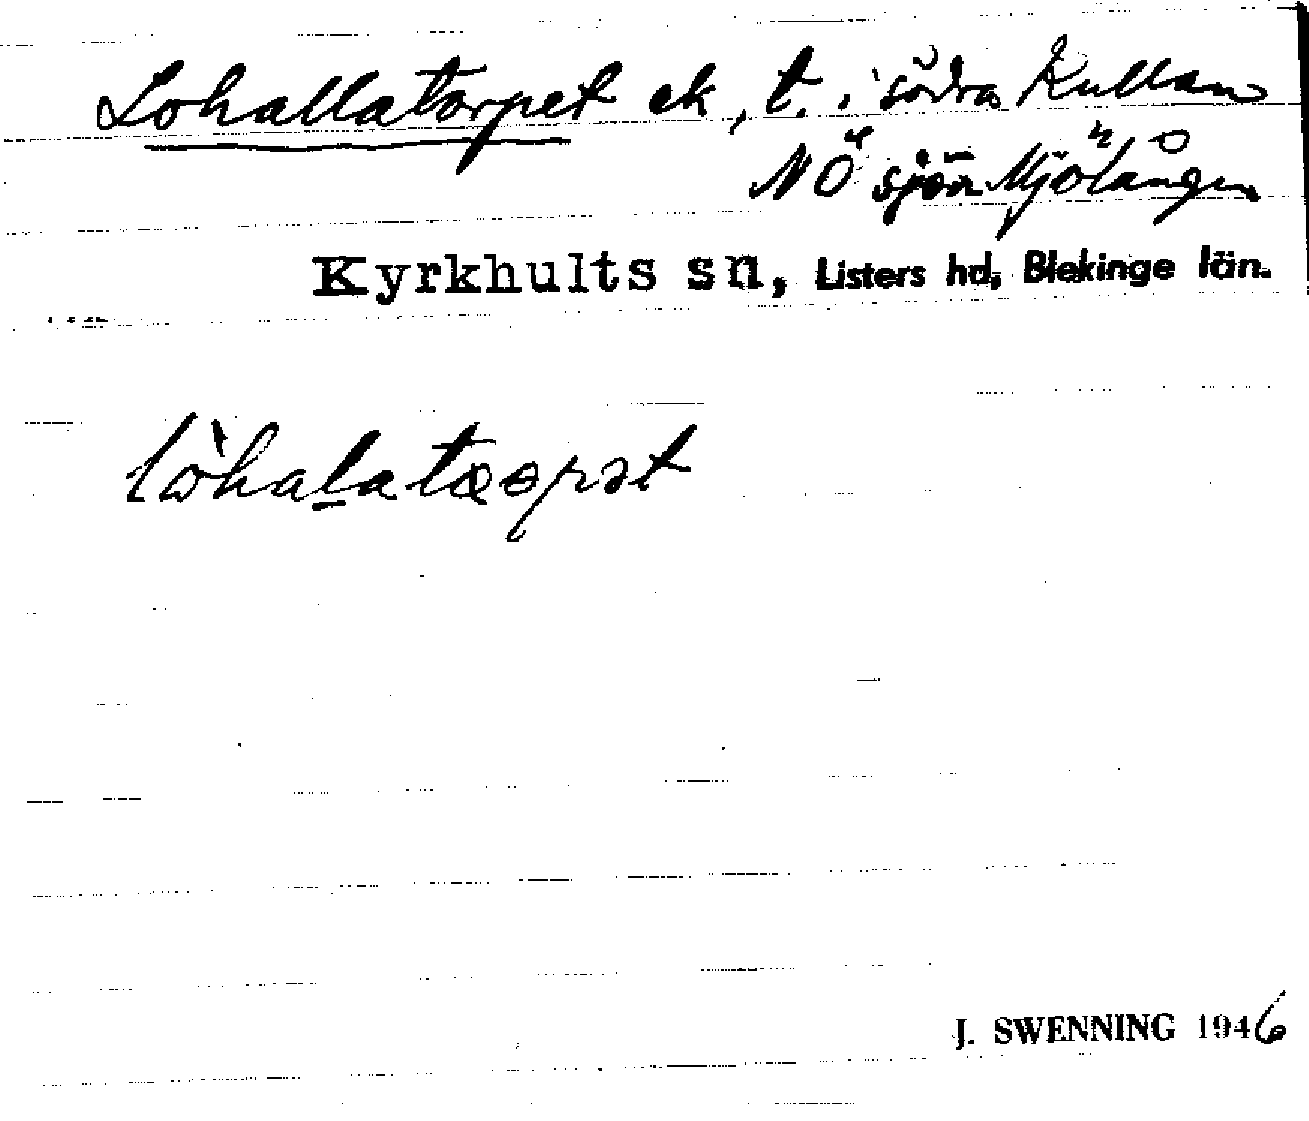 Lohallatorpet ek, t. i södra Kullan
NÖ sjön Mjölången
Kyrkhults sn, Listers hd, Blekinge län.
J. SWENNING 1946